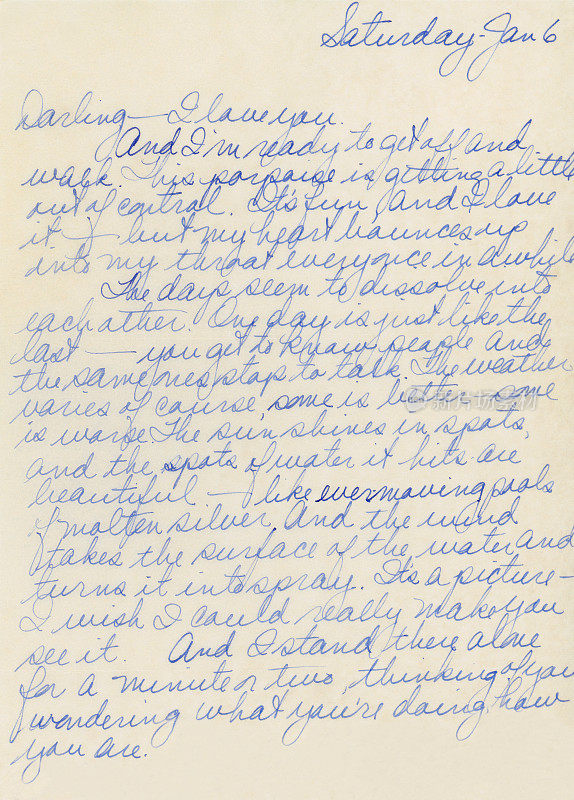 Saturday-Jan 6
Darling — I love you.
And I'm ready to get off and
walk. This porpoise is getting a little
out of control. It's fun, and I love
it — but my heart bounces up
into my throat everyonce in awhile
The days seem to dissolve into
each other. One day is just like the
last — you get to know people and
the same ones stop to talk. The weather
varies of course, some is better some
is worse. The sun shines in spots,
and the spots of water it hits are
beautiful — like evermoving pools
of molten silver. And the wind
takes the surface of the water and
turns it into spray. It's a picture –
I wish I could really make you
see it. And I stand there alone
for a minute or two, thinking of you
wondering what you're doing, how
you are.